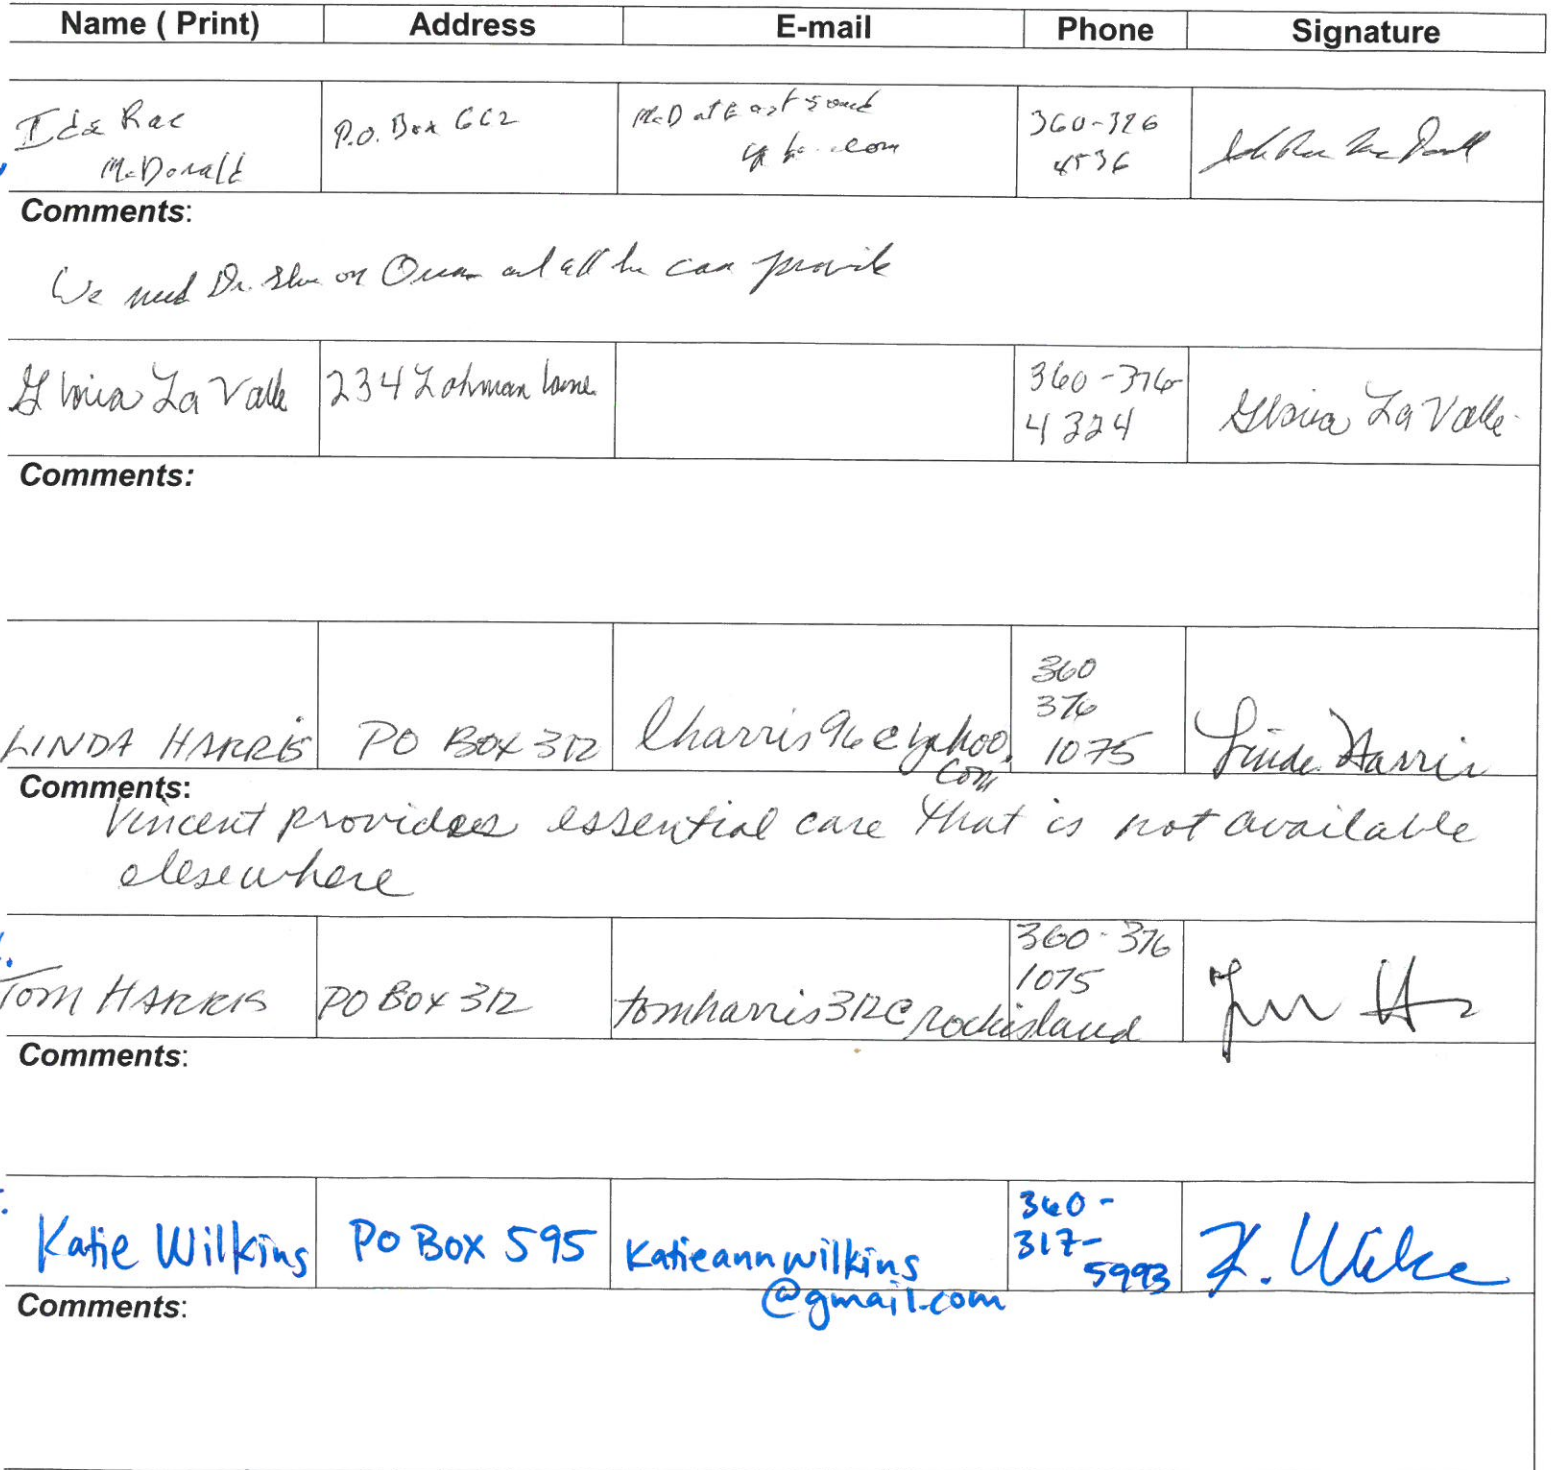 Name ( Print) Address E-mail Phone Signature
Ida Rae
McDonald
P.O. Box 662
McD at Eastsound
.com
360-376
4536
Comments:
We need Dr. on Orcas and all he can provide
Gloria La Valle
234 Lohman Lane
360-376-
4324
Gloria La Valle
Comments:
LINDA HARRIS
PO BOX 312
lharris96@yahoo.
com
360
376
1075
Linda Harris
Comments:
Vincent provides essential care that is not available
elesewhere
TOM HARRIS
PO BOX 312
tomharris312@rockisland
360-376
1075
Comments:
Katie Wilkins
PO BOX 595
katieannwilkins
@gmail.com
360-
317-
5993
K. Wilke
Comments: